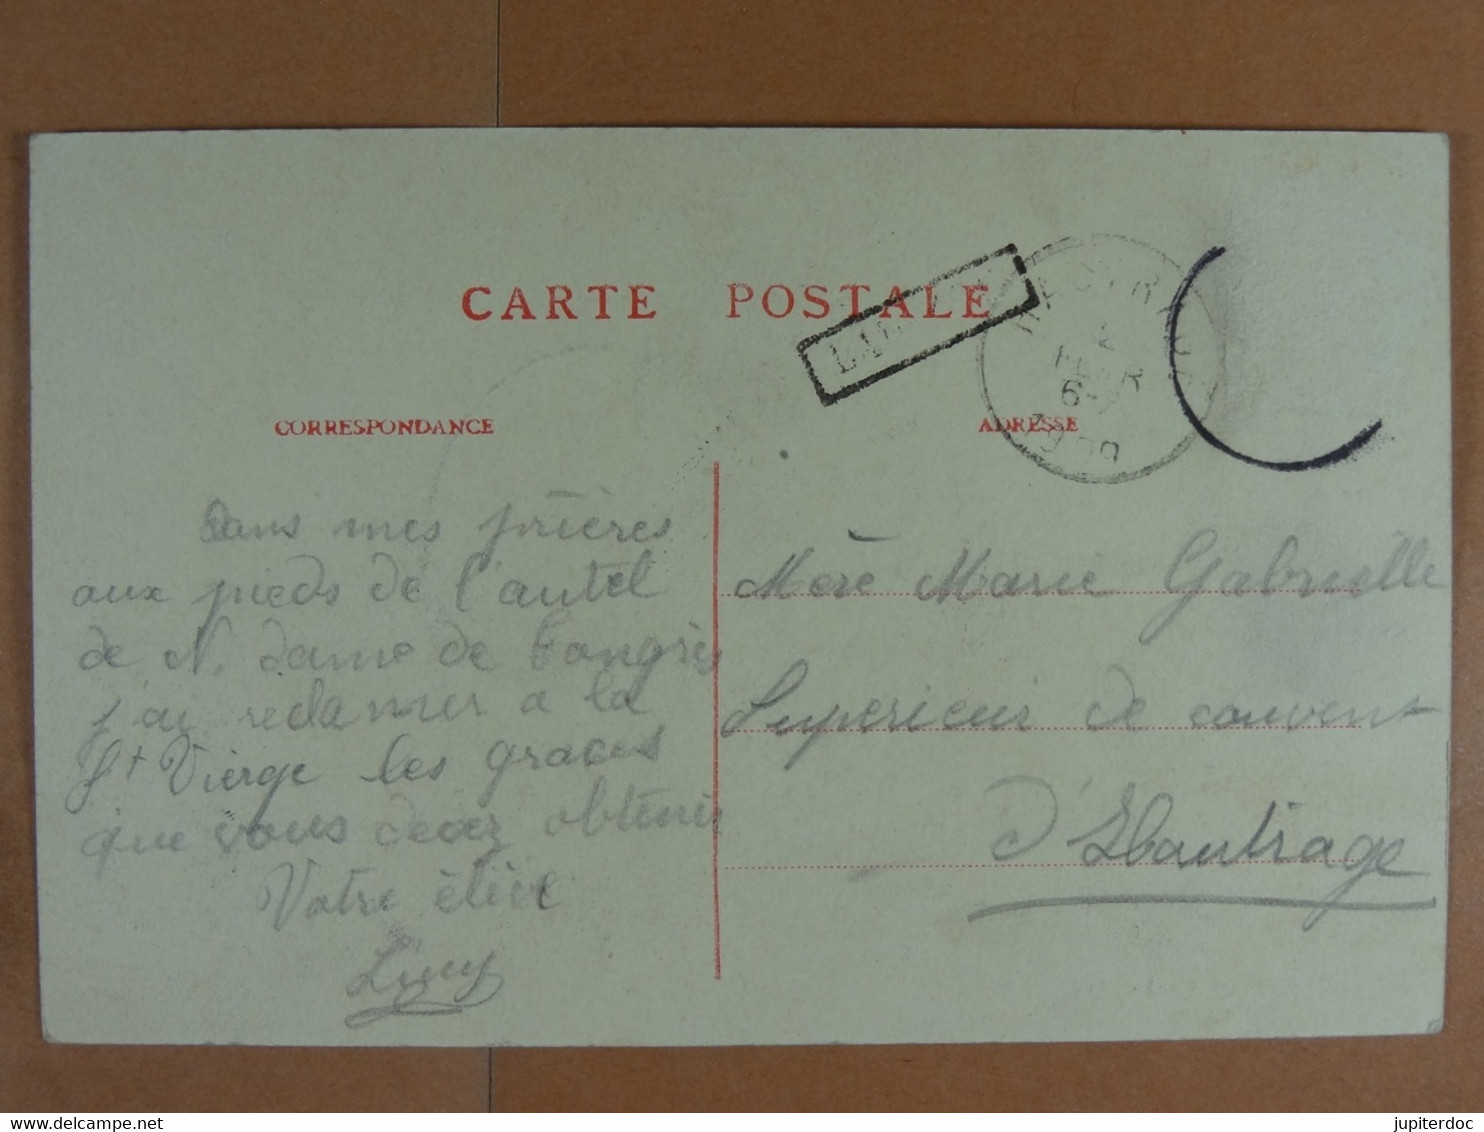 CARTE POSTALE
CORRESPONDANCE
ADRESSE
2
6-
Dans mes prières
aux pieds de l'autel
de N. Dame de Tongres
j'ai réclamer a la
St Vierge les graces
que vous devez obtenir
Votre élève
Lucy
Mère Marie Gabrielle
Superieur de couvent
D'Hautrage
www.delcampe.net
jupiterdoc